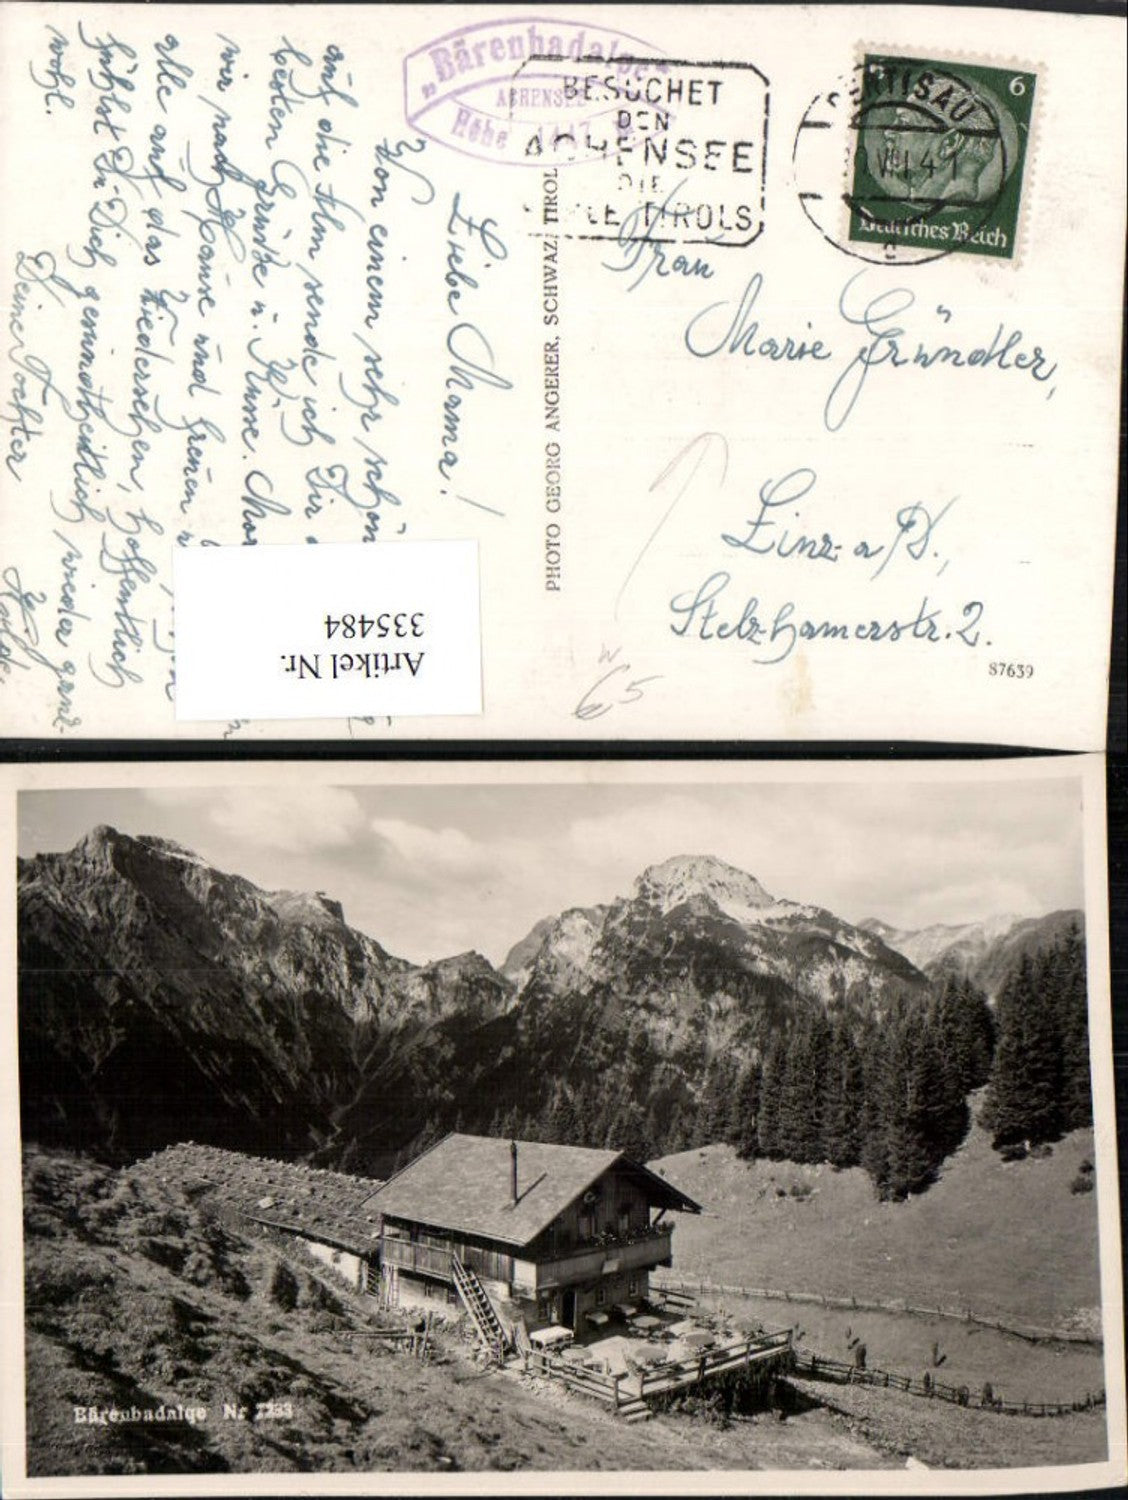 „Bärenbadalpe“
ACHENSEE
Höhe 1447
BESUCHET
DEN
ACHENSEE
DIE
TIROLS
PERTISAU
VII.41
6
Deutsches Reich
Liebe Mama!
Von einem sehr schön
auf die Alm sende ich Dir
besten Grüße u. Küsse.
wir nach Hause und freuen
alle auf das Wiedersehen, hoffentlich
fühlst Du Dich gemütlich wieder ganz
wohl.
Deine Tochter
Hilde.
PHOTO GEORG ANGERER, SCHWAZ/TIROL
Frau
Marie Gründler,
Linz a/D.,
Stelzhamerstr. 2.
87639
W
65
Artikel Nr.
335484
Bärenbadalpe Nr